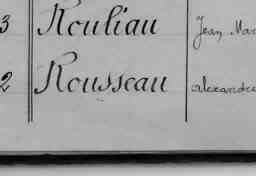 3 Rouliau Jean Mar
2 Rousseau alexandre